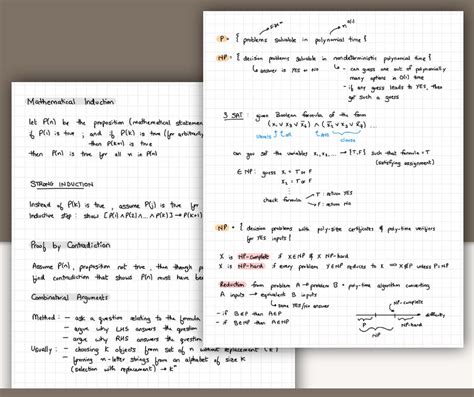 Mathematical Induction
let P(n) be the proposition (mathematical statement
if P(1) is true, and if P(k) is true (for arbitrary
then P(k+1) is true
then P(n) is true for all n
STRONG INDUCTION
Instead of P(k) is true, assume P(j) is true for
Inductive step: show [P(1)∧P(2)∧...∧P(k)] → P(k+1)
Proof by Contradiction
Assume P(n), proposition not true, then though
find contradiction that shows P(n) must have been
Combinatorial Arguments
Method: - ask a question relating to the formula
- argue why LHS answers the question
- argue why RHS answers the question
Usually: - choosing K objects from set of n without replacement
- forming n-letter strings from an alphabet of size K
(selection with replacement) → Kⁿ
P = { problems solvable in polynomial time }
NP = { decision problems solvable in nondeterministic polynomial time }
↳ answer is YES or NO
- can guess one out of polynomially
many options in O(1) time
- if any guess leads to YES, then
get such a guess
3 SAT: given Boolean formula of the form
literals
OR
AND
clause
can you set the variables x₁, x₂, ... → {T,F} such that formula = T
(satisfying assignment)
∈ NP: guess x₁ = T or F
x₂ = T or F
check formula
T: return YES
F: return NO
NP = { decision problems with poly-size certificates & poly-time verifiers
for YES inputs }
X is NP-complete if X∈NP & X NP-hard
X is NP-hard if every problem Y∈NP reduces to X ⇒ X∉P unless P=NP
Reduction from problem A → problem B = poly-time algorithm converting
A inputs → equivalent B inputs
↳ same YES/NO answer
- if B∈P then A∈P
- if B∈NP then A∈NP
NP-complete
P
NP
NP-hard
difficulty